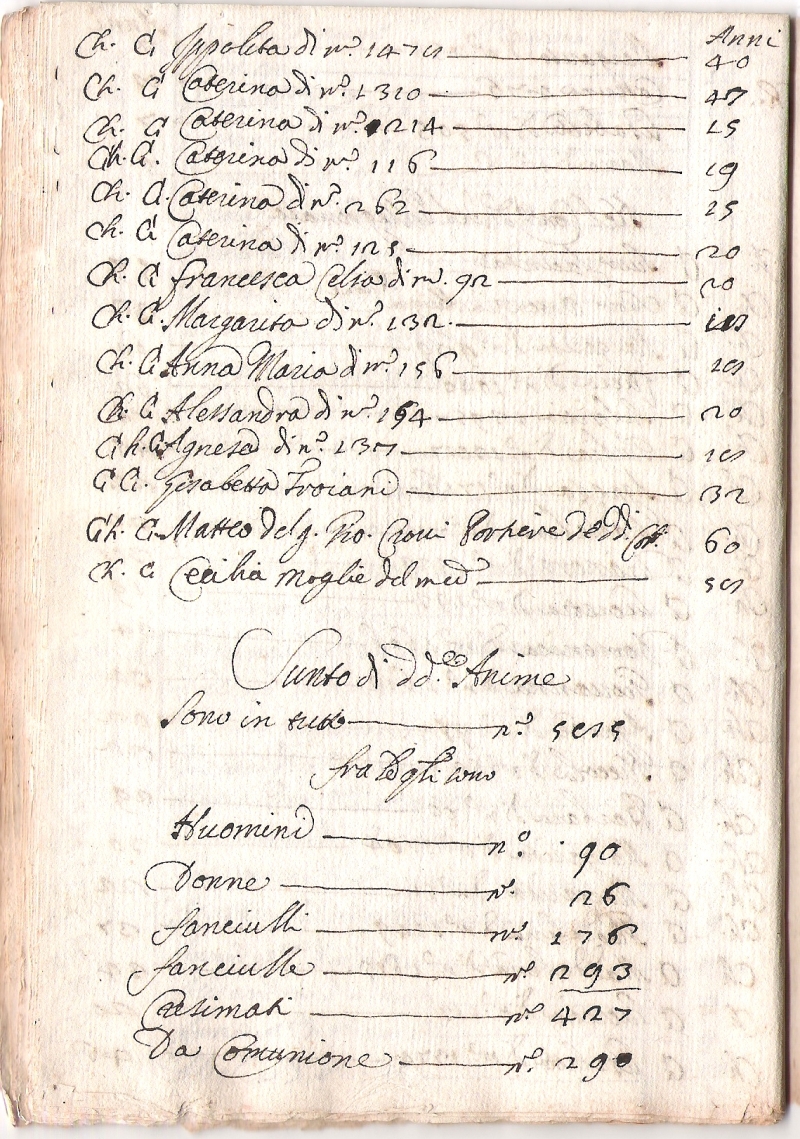 Anni
Ch. C Ippolita di nº. 1478 40
Ch. C Caterina di nº. 1310 47
Ch. C Caterina di nº. 1214 15
Ch. C. Caterina di nº. 116 19
Ch. C. Caterina di nº. 262 25
Ch. C Caterina di nº. 125 20
Ch. C Francesca Celsa di nº. 92 20
Ch. C. Margarita di nº. 132 18
Ch. C Anna Maria di nº. 156 18
Ch. C Alessandra di nº. 164 20
Ch. C Agnesa di nº. 137 18
C C. Troiani 32
Ch. C. Matteo del q. Gio. Portiere de dd. 60
Ch. C Cecilia moglie del medº 58
Sunto di dd.ᵉ Anime
Sono in tutto nº. 585
fra le qli sono
Huomini nº. 90
Donne nº. 26
fanciulli nº. 176
fanciulle nº. 293
Cresimati nº. 427
Da Comunione nº. 290